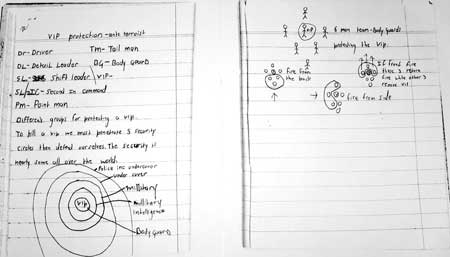 VIP protection - anti terrorist
Dr - Driver
Tm - Tail man
DL - Detail Leader
DG - Body Guard
SL - Shift Leader
VIP -
SL/2IC - Second in command
Pm - Point man
Different groups for protecting a vip.
To kill a vip we must penetrate 3 security
circles then defend ourselves. The security is
nearly same all over the world.
Police inc undercover
under cover
Millitary
Millitary
intelligence
VIP
Body guard
VIP
6 man team - Body Guards
protecting the VIP.
fire from
the back
If front fire
these 3 return
fire while other 3
remove VIP
fire from side